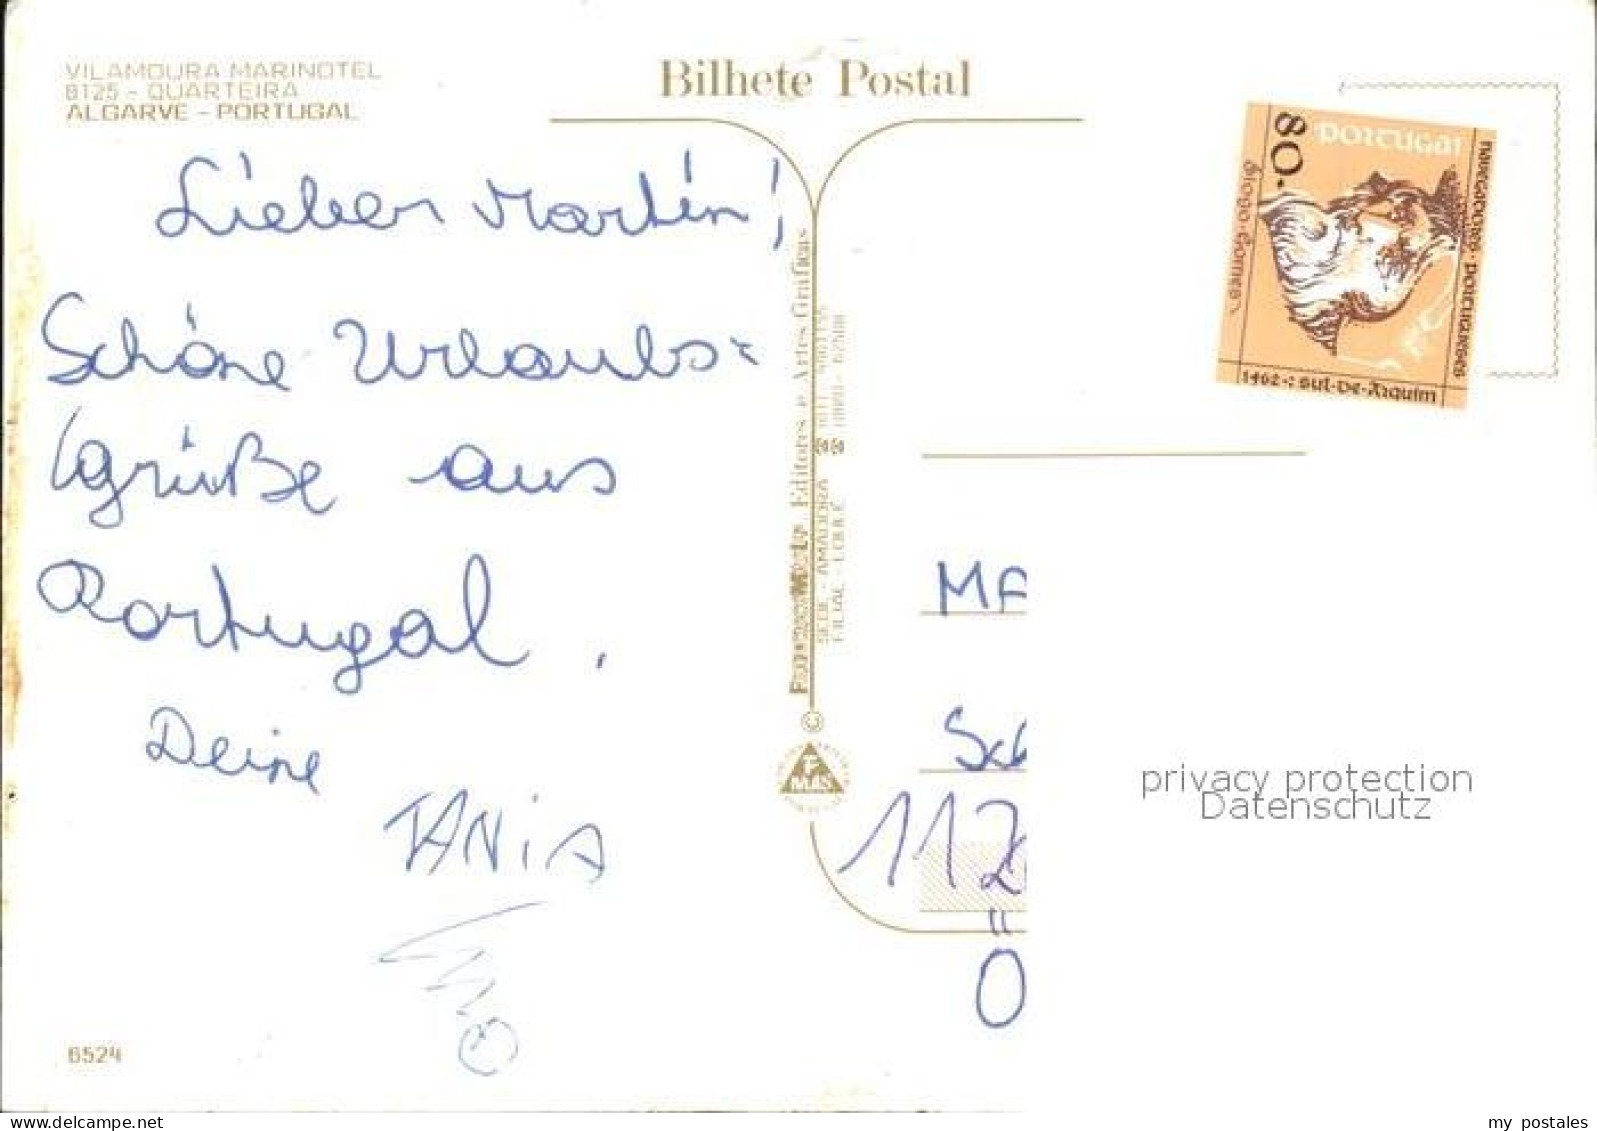 VILAMOURA MARINOTEL
8125 - QUARTEIRA
ALGARVE - PORTUGAL
Bilhete Postal
Lieber Martin!
Schöne Urlaubs=
grüße aus
Portugal.
Deine
TANiA
6524
Editores e Artes Gráficas
SEDE - AMADORA
FILIAL - LOULÉ
©
PORTUGAL
80.
navegadores portugueses
diogo gomes
1462-: sul-de-Arquim
MA
Sch
112
Ö
privacy protection
Datenschutz
my postales